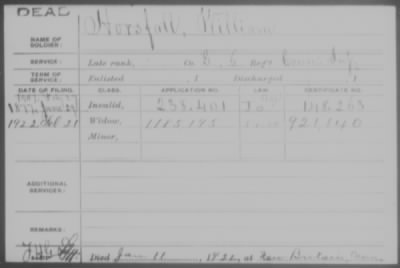 DEAD
NAME OF SOLDIER: Horsfall, William
SERVICE: Late rank, Co. E, 6 Reg't Conn. Inf.
TERM OF SERVICE: Enlisted , 1 Discharged , 1
DATE OF FILING. CLASS. APPLICATION NO. LAW. CERTIFICATE NO.
1877 June Invalid, 238.401 148.263
1922 Feb 21 Widow, 1185195 921,140
Minor,
ADDITIONAL SERVICES:
REMARKS:
Died Jan 11, 1922, at New Britain, Conn.